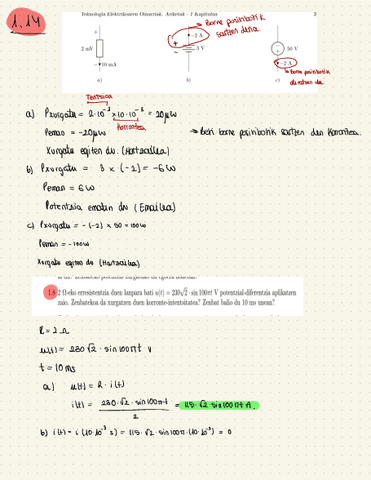 1.14
Teknologia Elektrikoaren Oinarriak. Ariketak - 1 Kapitulua 3
Borne positibotik
sartzen dena
+
2 mV
10 mA
−2 A
3 V
50 V
−2 A
Borne positibotik
a) b) c)
Tentsioa
a) Pxurgatu = 2·10⁻³ × 10·10⁻³ = 20μW
Korrontea
Peman = −20μW
→ Beti borne positibotik sartzen den korrontea.
Xurgatu egiten du. (Hartzailea)
b) Pxurgatu = 3 × (−2) = −6W
Peman = 6W
Potentzia ematen du (Emailea)
c) Pxurgatu = −(−2) × 50 = 100W
Peman = −100W
Xurgatu egiten du (Hartzailea)
1.8 2 Ω-eko erresistentzia duen lanpara bati u(t) = 230√2 · sin 100πt V potentzial-diferentzia aplikatzen
zaio. Zenbatekoa da xurgatzen duen korronte-intentsitatea? Zenbat balio du 10 ms unean?
R = 2 Ω
u(t) = 230 √2 · sin100πt V
t = 10 ms
a) u(t) = R · i(t)
i(t) = 230·√2 · sin100πt / 2 = 115·√2 sin100πt A.
b) i(t) = i (10·10⁻³ s) = 115·√2 · sin100π·(10·10⁻³) = 0